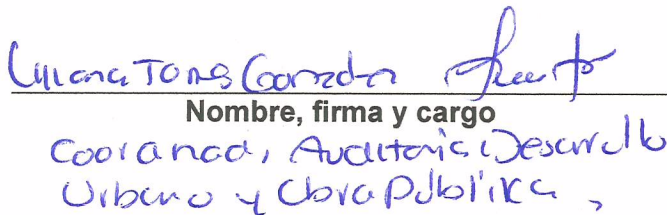 Liliana Torres González
Nombre, firma y cargo
Coordinad, Auditoria Desarrollo
Urbano y Obra Publica,